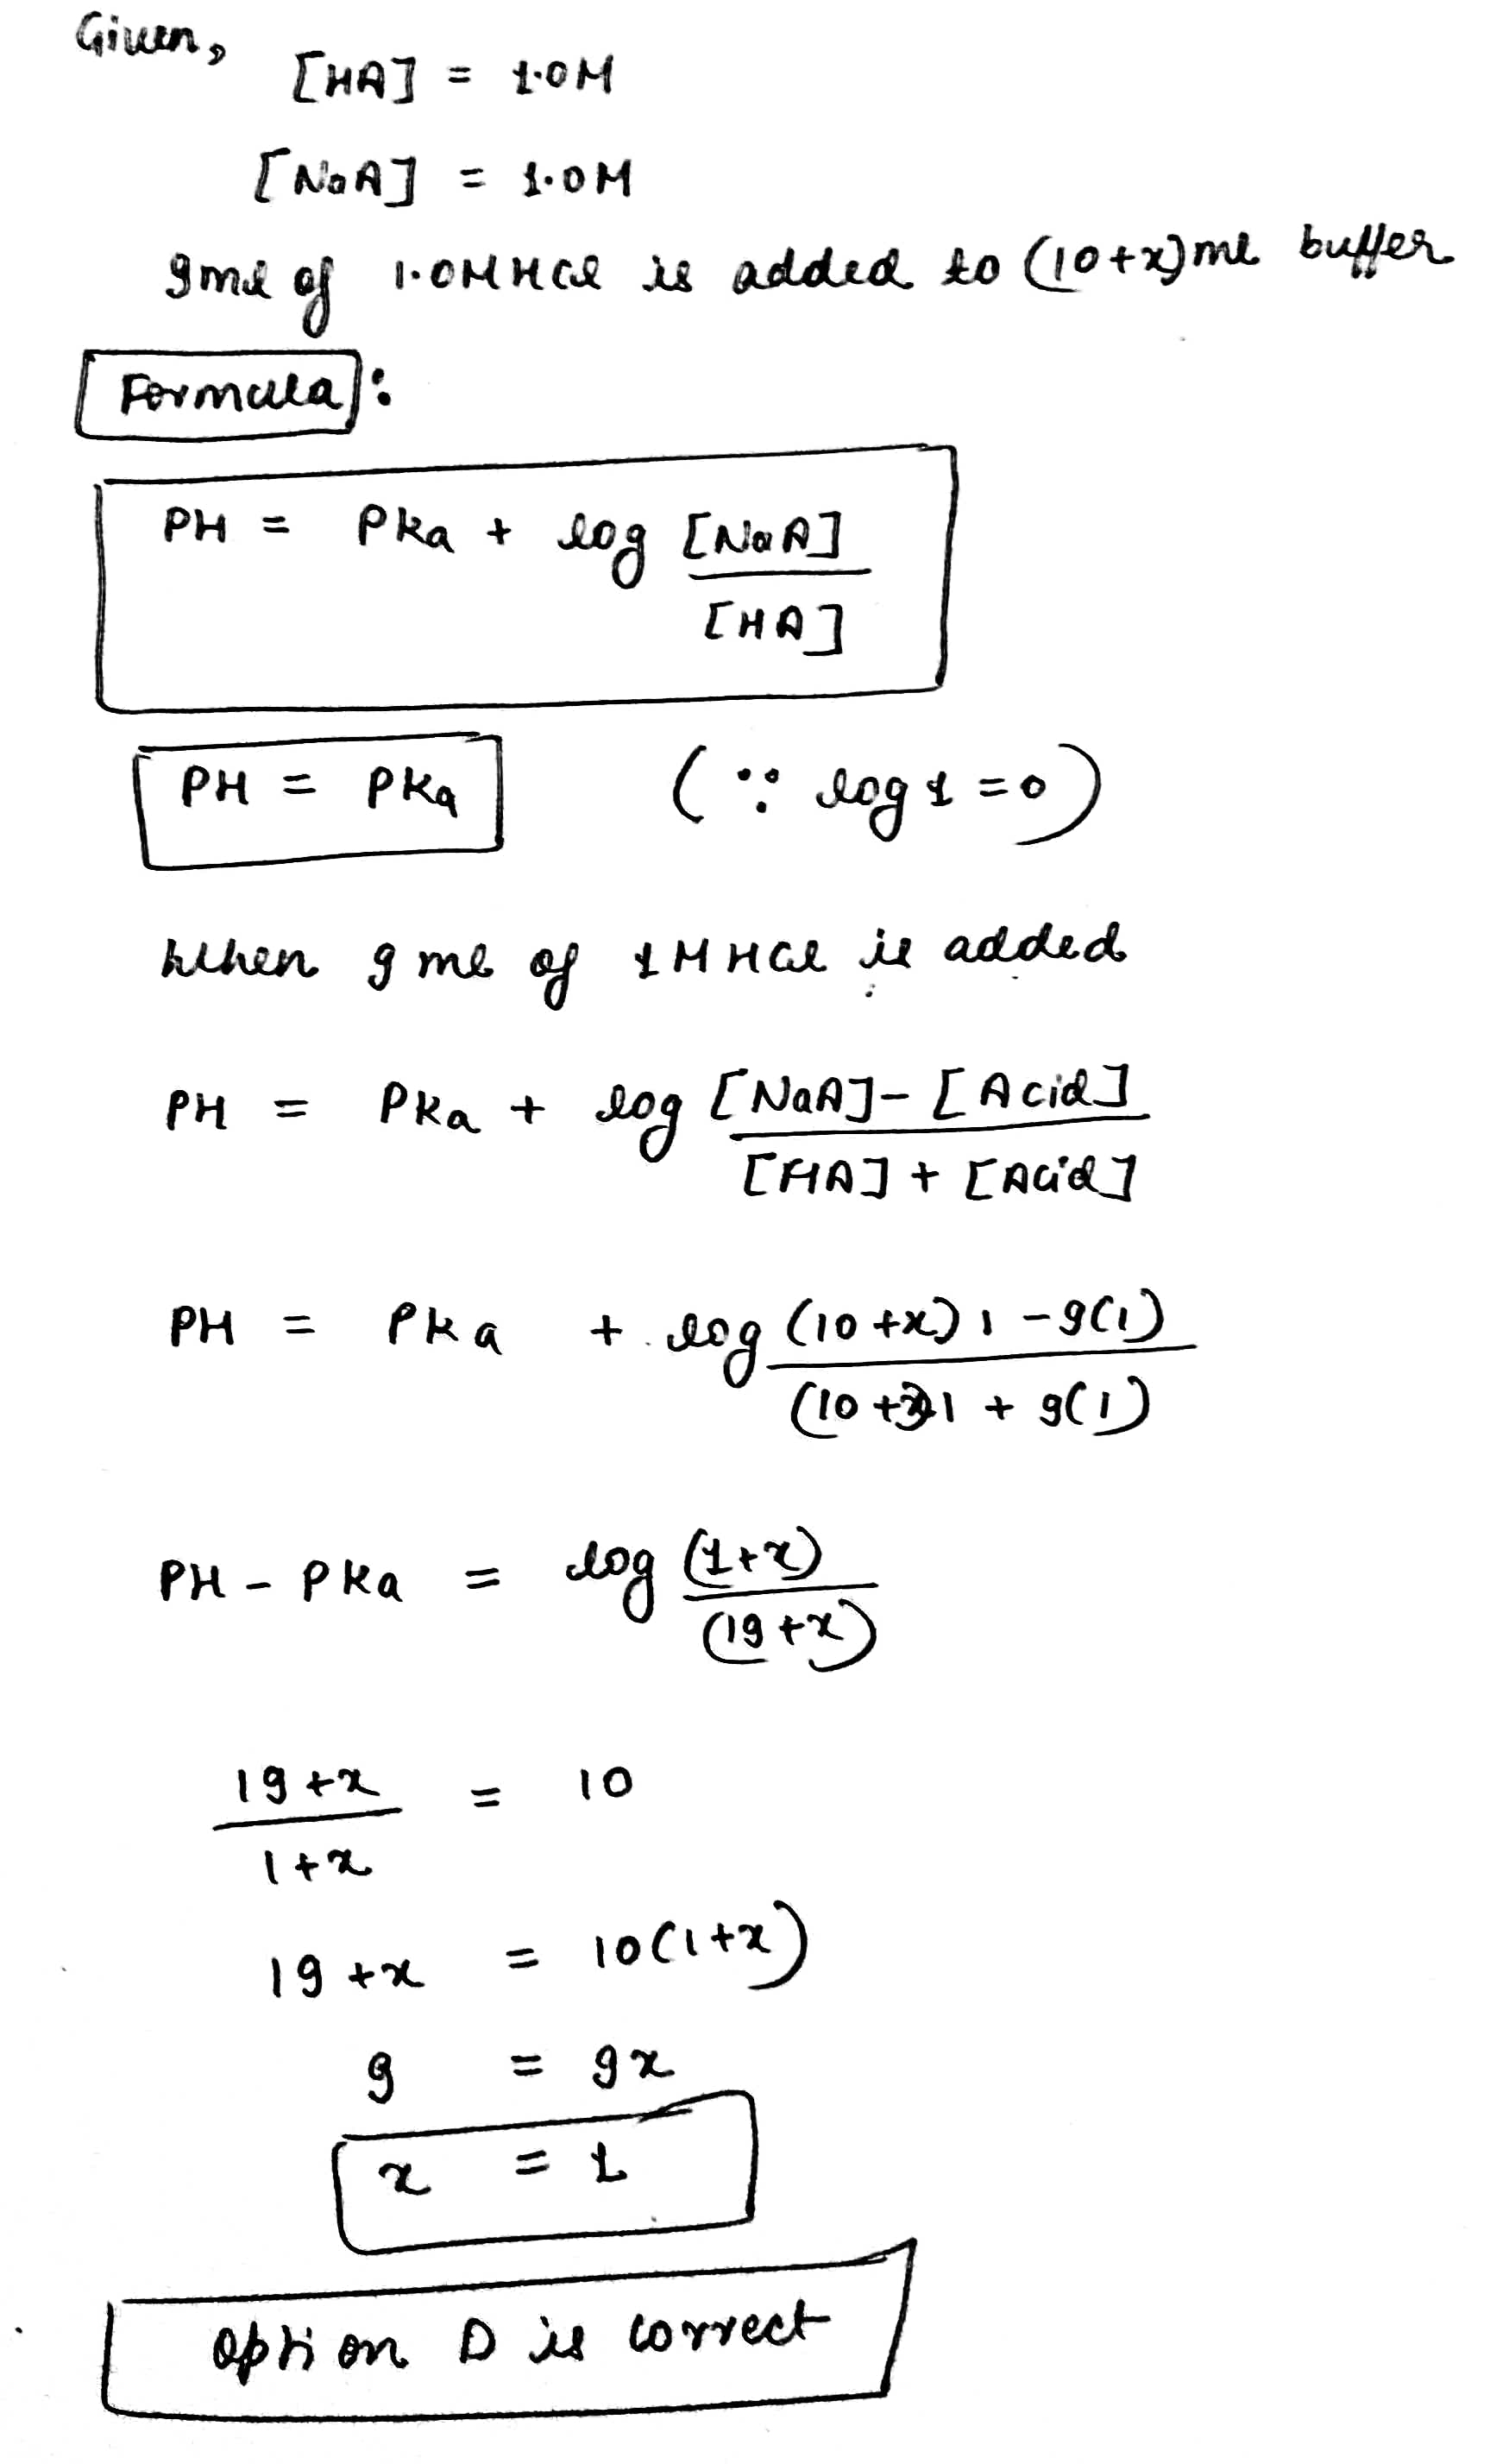 Given,
[HA] = 1.0M
[NaA] = 1.0M
9ml of 1.0M HCl is added to (10+x)ml buffer
Formula:
PH = Pka + log [NaA]
[HA]
PH = PKa (∵ log 1 = 0)
When 9 ml of 1M HCl is added
PH = PKa + log [NaA] - [Acid]
[HA] + [Acid]
PH = PKa + log (10+x)1 - 9(1)
(10+x)1 + 9(1)
PH - PKa = log (1+x)
(19+x)
19+x = 10
1+x
19+x = 10(1+x)
9 = 9x
x = 1
Option D is correct